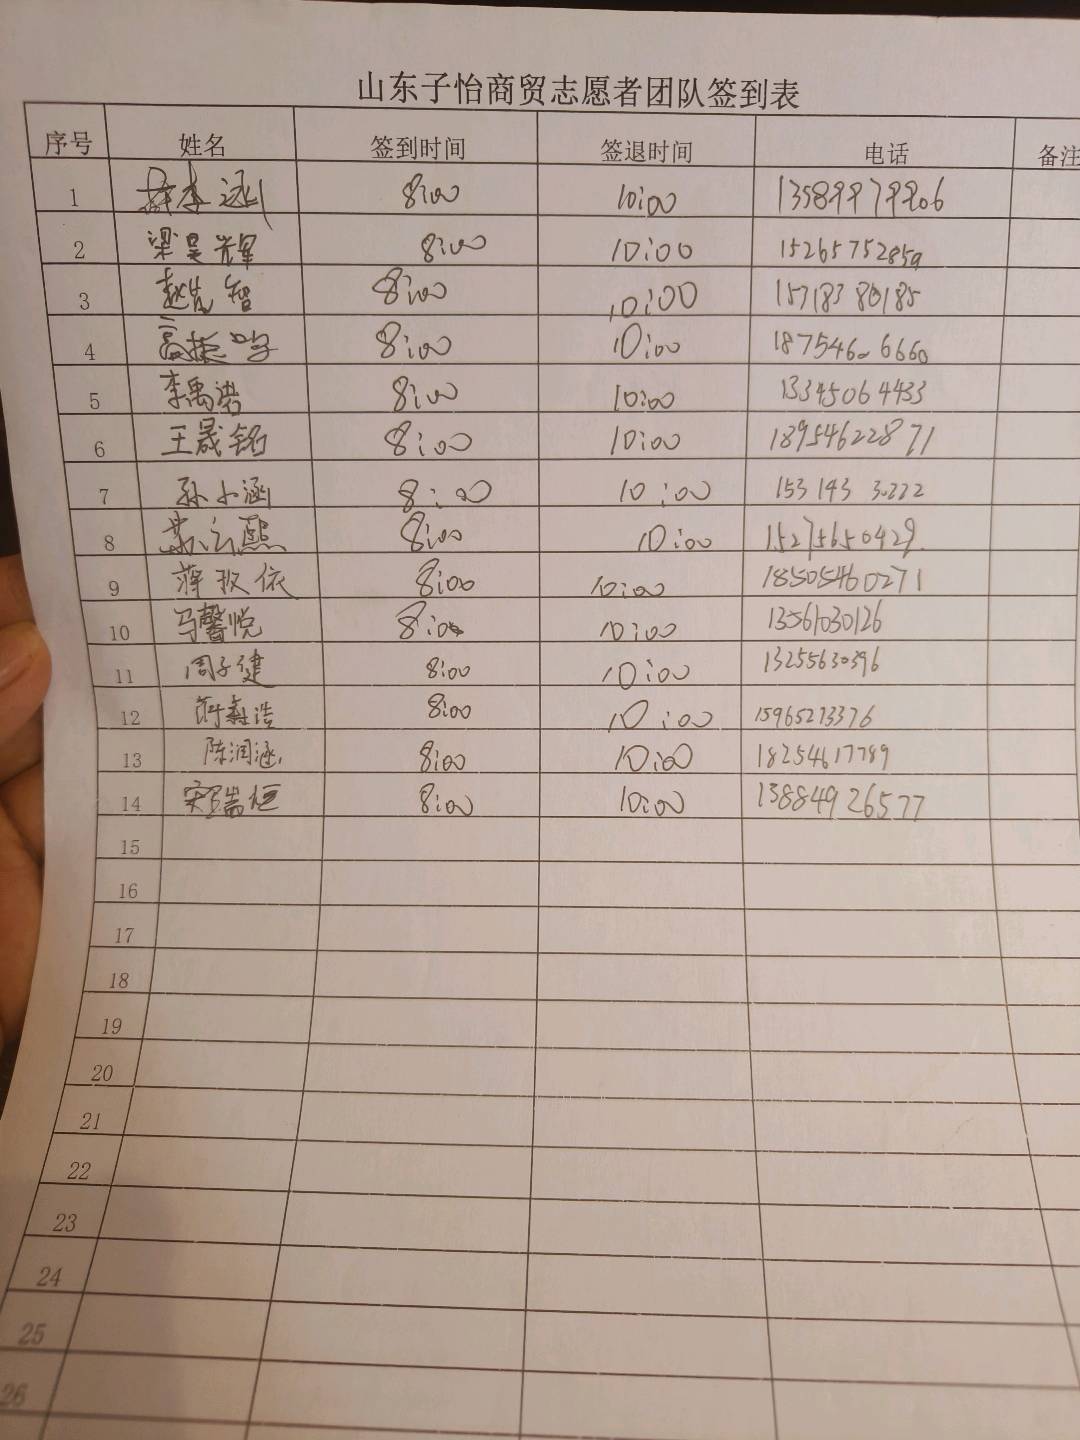 山东子怡商贸志愿者团队签到表
序号 姓名 签到时间 签退时间 电话 备注
1 8:00 10:00 13589979906
2 梁昊辉 8:00 10:00 15265752859
3 赵先智 8:00 10:00 15718380185
4 高振宇 8:00 10:00 18754606660
5 李禹浩 8:00 10:00 13345064433
6 王晟铭 8:00 10:00 18954622871
7 孙小涵 8:00 10:00 15314330222
8 苏云熙 8:00 10:00 15275650429
9 蒋玫依 8:00 10:00 18505460271
10 马馨悦 8:00 10:00 13561030126
11 周子健 8:00 10:00 13255630396
12 8:00 10:00 15965273376
13 陈润涵 8:00 10:00 18254617789
14 宋瑞恒 8:00 10:00 13884926577
15
16
17
18
19
20
21
22
23
24
25
26